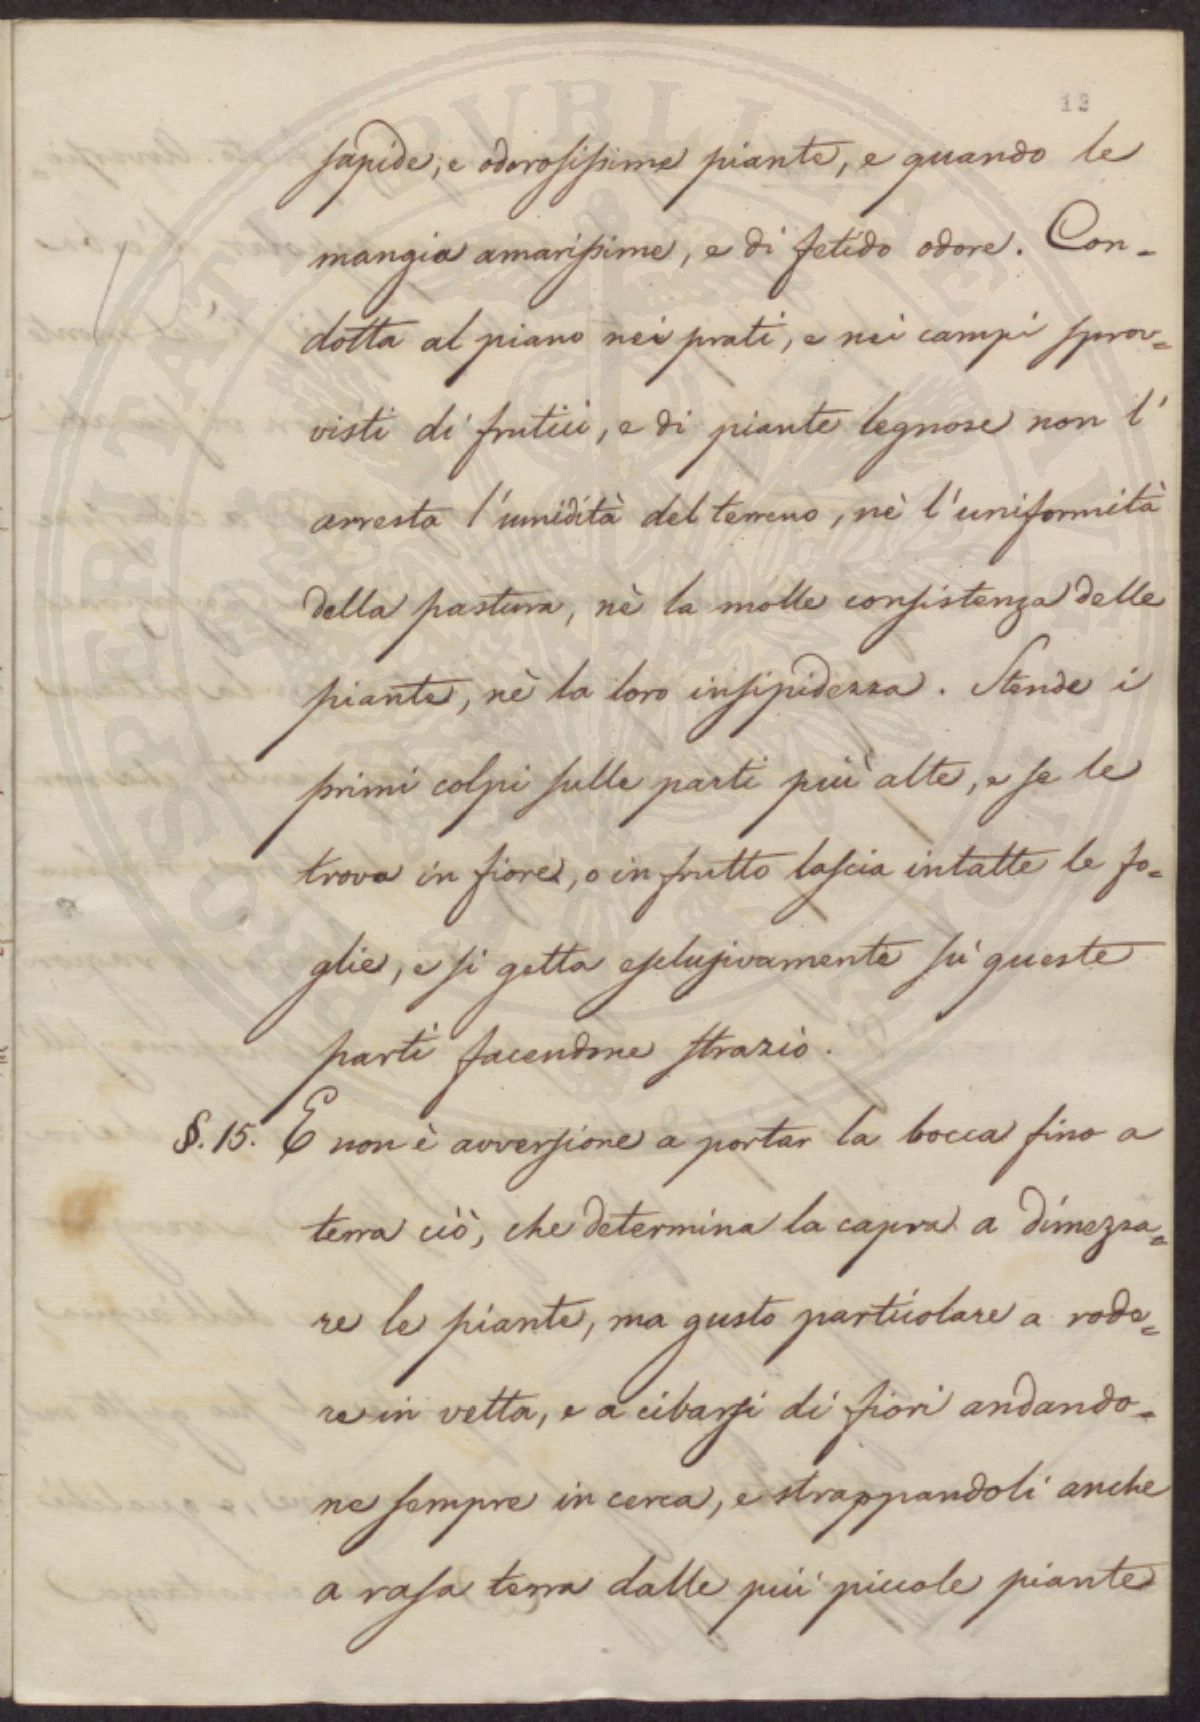 12
sapide, e odorosissime piante, e quando le
mangia amarissime, e di fetido odore. Con=
dotta al piano nei prati, e nei campi sprov=
visti di frutici, e di piante legnose non l'
arresta l'umidità del terreno, nè l'uniformità
della pastura, nè la molle consistenza delle
piante, nè la loro insipidezza. Stende i
primi colpi sulle parti più alte, e se le
trova in fiore, o in frutto lascia intatte le fo=
glie, e si getta esclusivamente sù queste
parti facendone strazio.
§. 15. E non è avversione a portar la bocca fino a
terra ciò, che determina la capra a dimezza=
re le piante, ma gusto particolare a rode=
re in vetta, e a cibarsi di fiori andando=
ne sempre in cerca, e strappandoli anche
a rasa terra dalle più piccole piante